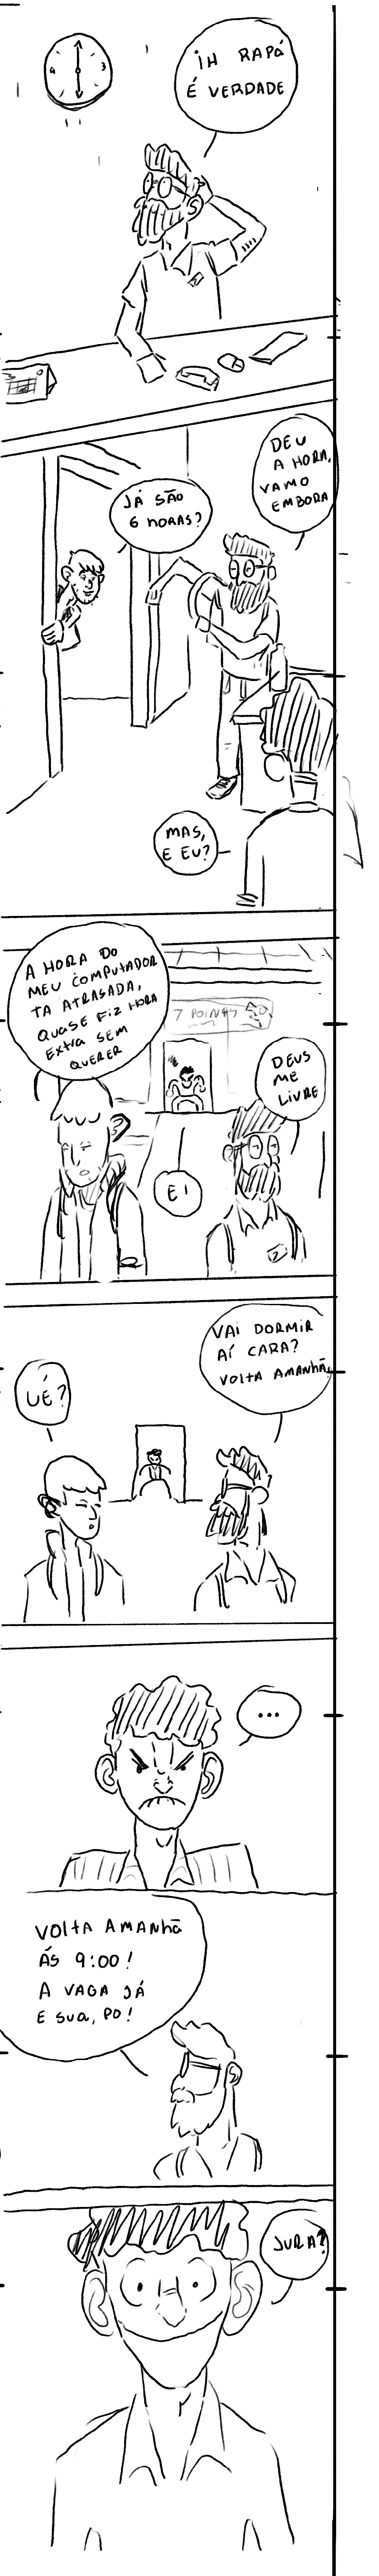 9
3
IH RAPÁ
É VERDADE
JÁ SÃO
6 HORAS?
DEU
A HORA,
VAMO
EMBORA
MAS,
E EU?
A HORA DO
MEU COMPUTADOR
TA ATRASADA,
QUASE FIZ HORA
EXTRA SEM
QUERER
DEUS
ME
LIVRE
EI
UÉ?
VAI DORMIR
AÍ CARA?
VOLTA AMANHÃ,
...
VOLTA AMANHÃ
ÁS 9:00!
A VAGA JÁ
E SUA, PO!
JURA?